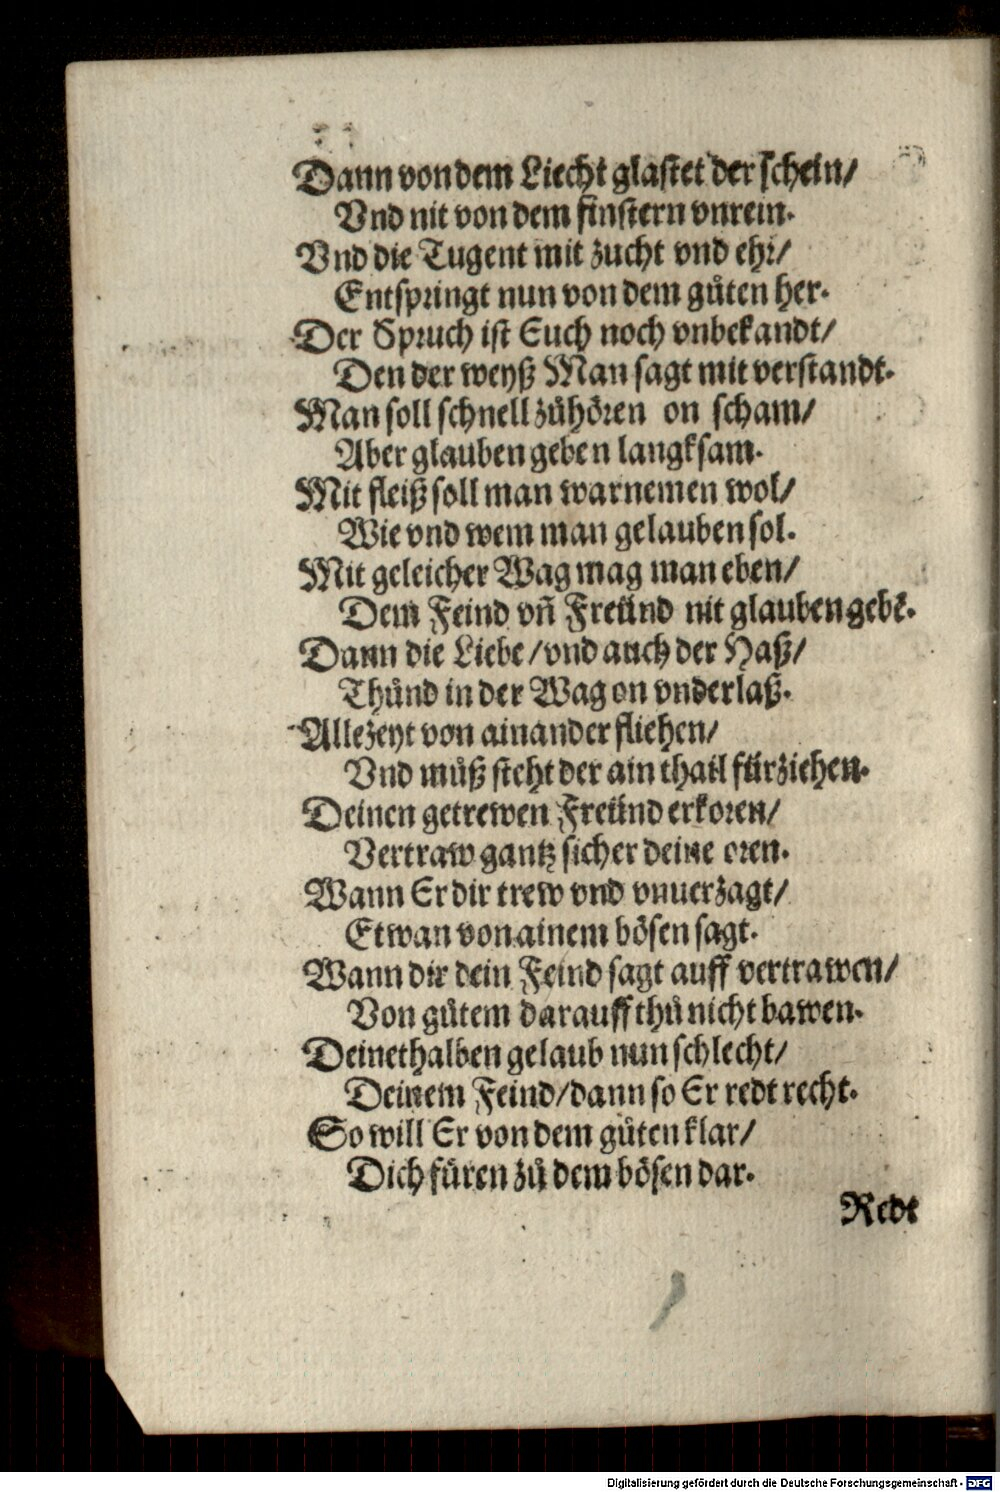 Dann von dem Liecht glastet der schein/
Vnd nit von dem finstern vnrein.
Vnd die Tugent mit zucht vnd ehr/
Entspringt nun von dem guͤten her.
Der Spruch ist Euch noch vnbekandt/
Den der weyß Man sagt mit verstandt.
Man soll schnell zuͤhoͤren on scham/
Aber glauben geben langksam.
Mit fleiß soll man warnemen wol/
Wie vnd wem man gelauben sol.
Mit geleicher Wag mag man eben/
Dem Feind vñ Freünd nit glauben gebẽ.
Dann die Liebe/vnd auch der Haß/
Thuͤnd in der Wag on vnderlaß.
Allezeyt von ainander fliehen/
Vnd muͤß steht der ain thail fürziehen.
Deinen getrewen Freünd erkoren/
Vertraw gantz sicher deine oren.
Wann Er dir trew vnd vnuerzagt/
Etwan von ainem boͤsen sagt.
Wann dir dein Feind sagt auff vertrawen/
Von guͤtem darauff thuͤ nicht bawen.
Deinethalben gelaub nun schlecht/
Deinem Feind/dann so Er redt recht.
So will Er von dem guͤten klar/
Dich fuͤren zuͤ dem boͤsen dar.
Redt
Digitalisierung gefördert durch die Deutsche Forschungsgemeinschaft - DFG